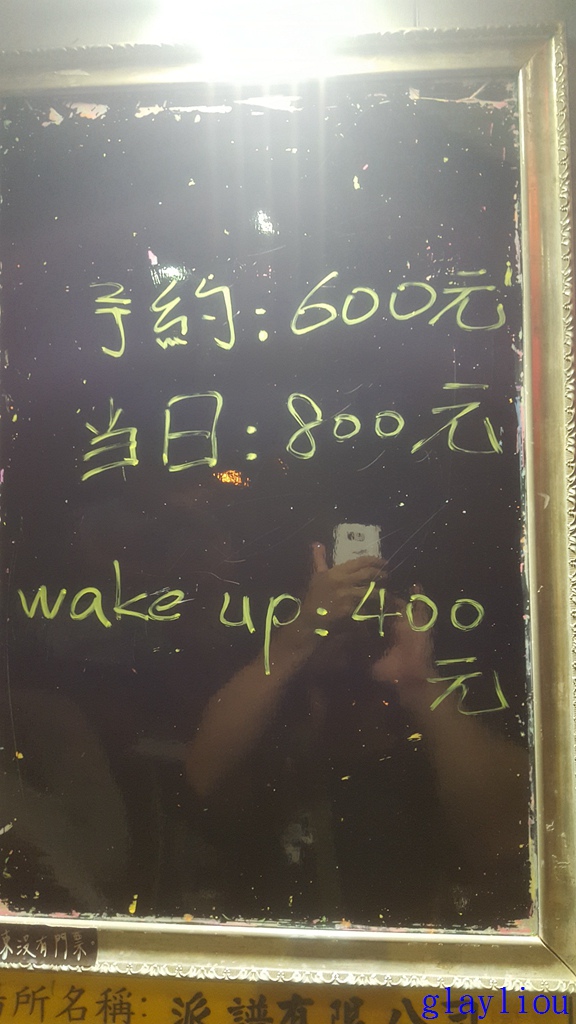 予約:600元
当日:800元
wake up:400
元
東没有門票.
所名稱:派譜有限公
glayliou